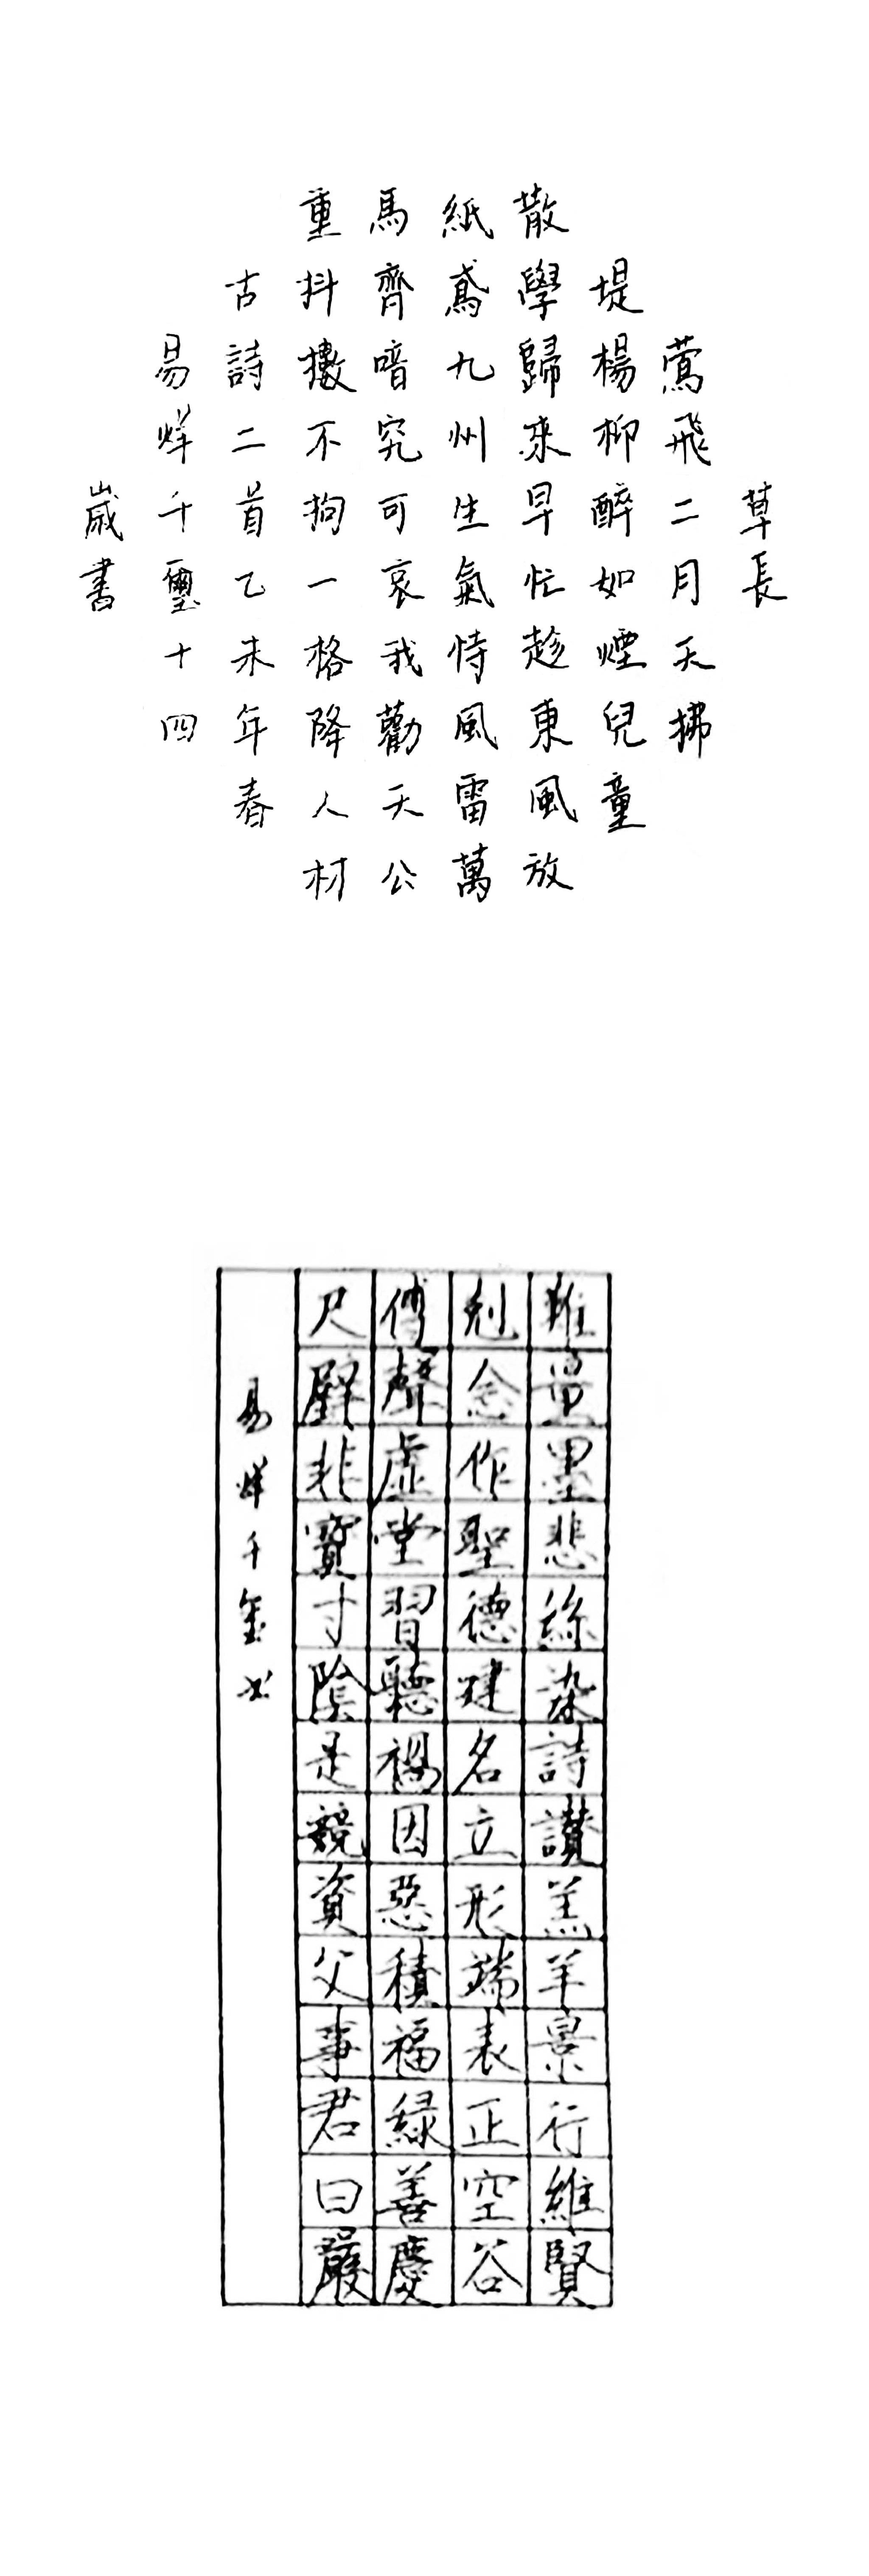 草長
鶯飛二月天拂
堤楊柳醉如煙兒童
散學歸來早忙趁東風放
紙鳶九州生氣恃風雷萬
馬齊喑究可哀我勸天公
重抖擻不拘一格降人材
古詩二首乙未年春
易烊千璽十四
歲書
難量墨悲絲染詩讚羔羊景行維賢
剋念作聖德建名立形端表正空谷
傳聲虛堂習聽禍因惡積福緣善慶
尺璧非寶寸陰是競資父事君曰嚴
易烊千璽书